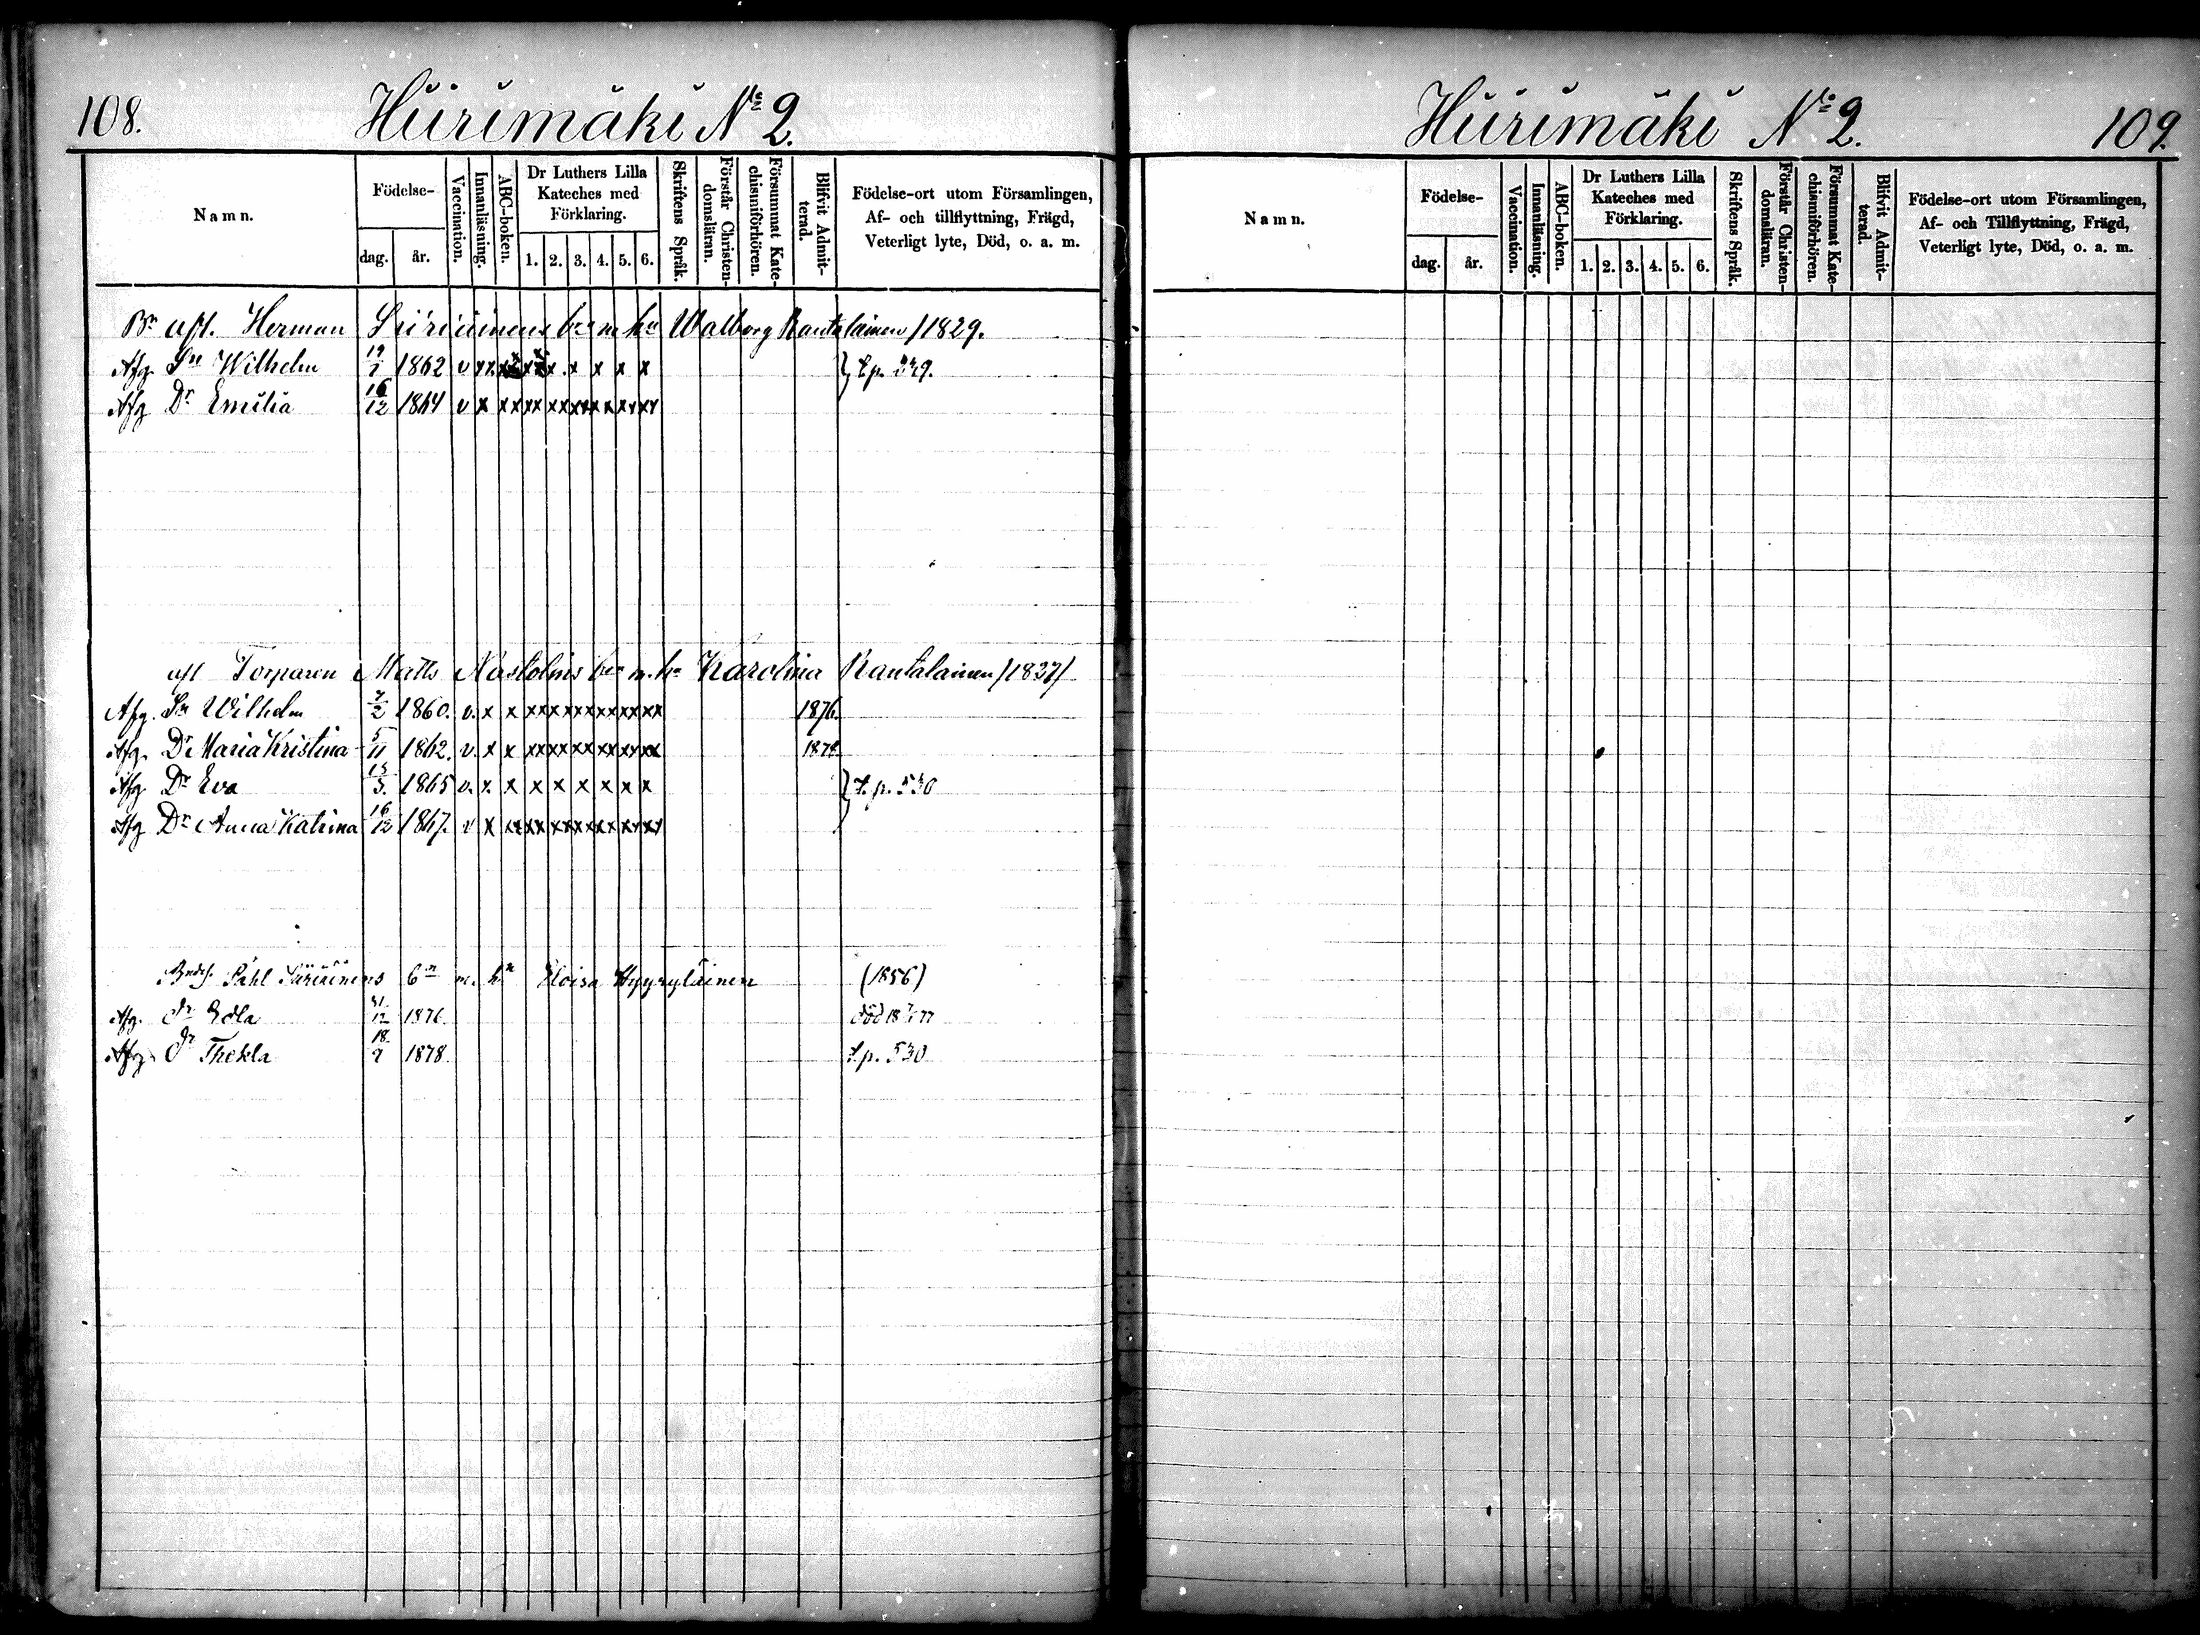 108. Hiirimäki No 2.
Namn. Födelse- dag. år. Vaccination. Innanläsning. ABC-boken. Dr Luthers Lilla Kateches med Förklaring. 1. 2. 3. 4. 5. 6. Skriftens Språk. Förstår Christendomsläran. Försummat Katechismiförhören. Blifvit Admitterad. Födelse-ort utom Församlingen, Af- och tillflyttning, Frägd, Veterligt lyte, Död, o. a. m.
Bn afl. Herman bn m. hu Walborg Rantalainen /1829.
Afg. Sn Wilhelm 1862 v x x x x x x x x
Afg Dr Emilia 16/12 1864 v x x x x x x x x x x x x x x
afl Torparen Matts Nastolins bn m. hu Karolina Rantalainen /1837/
Afg. Sn Wilhelm 7/2 1860. v. x x xx xx xx xx xx xx 1876.
Afg. Dr Maria Kristina 5/11 1862. v. x x xx xx xx xx xx xx
Afg Dr Eva 1865 v. x x x x x x x x
Afg Dr Anna Katrina 16/12 1867. v x xx xx xx xx xx xx xx
Påhl bn m. hu Loisa Hyyryläinen (1856)
Afg. dr Edla 31/12 1876. död
Afg. dr Thekla 1878. t.p. 530
Hiirimäki No 2. 109.
Namn. Födelse- dag. år. Vaccination. Innanläsning. ABC-boken. Dr Luthers Lilla Kateches med Förklaring. 1. 2. 3. 4. 5. 6. Skriftens Språk. Förstår Christendomsläran. Försummat Katechismiförhören. Blifvit Admitterad. Födelse-ort utom Församlingen, Af- och Tillflyttning, Frägd, Veterligt lyte, Död, o. a. m.